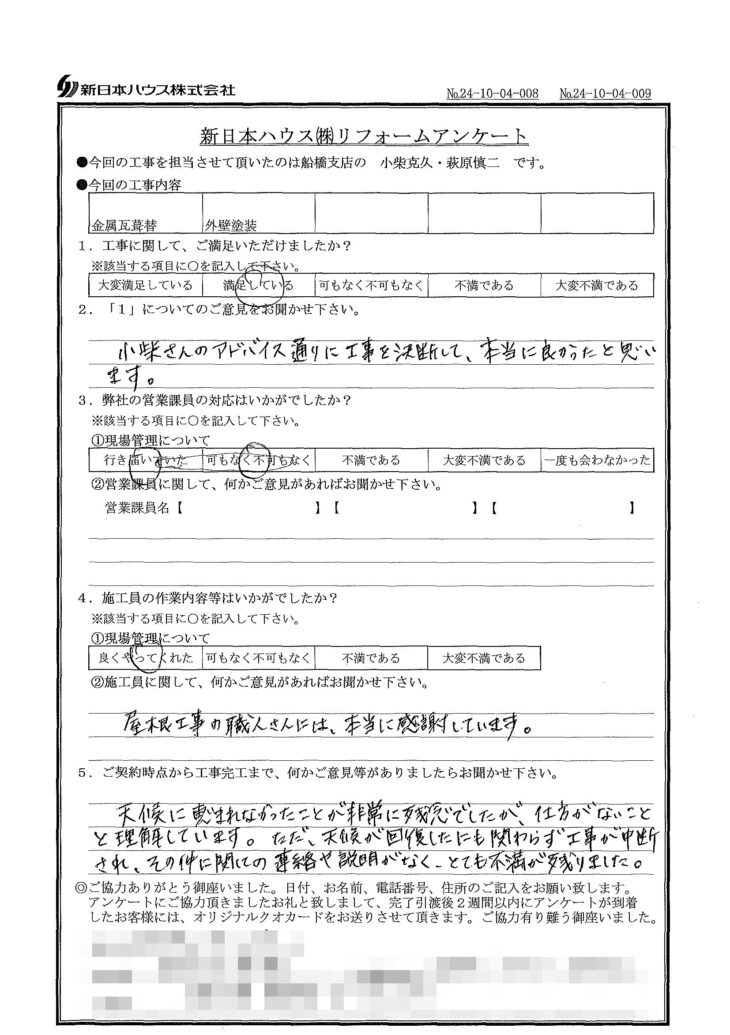 新日本ハウス株式会社
№24-10-04-008 №24-10-04-009
新日本ハウス㈱リフォームアンケート
●今回の工事を担当させて頂いたのは船橋支店の 小柴克久・萩原慎二 です。
●今回の工事内容
金属瓦葺替 外壁塗装
1．工事に関して、ご満足いただけましたか？
※該当する項目に○を記入して下さい。
大変満足している 満足している 可もなく不可もなく 不満である 大変不満である
2．「1」についてのご意見をお聞かせ下さい。
小柴さんのアドバイス通りに工事を決断して、本当に良かったと思い
ます。
3．弊社の営業課員の対応はいかがでしたか？
※該当する項目に○を記入して下さい。
①現場管理について
行き届いていた 可もなく不可もなく 不満である 大変不満である 一度も会わなかった
②営業課員に関して、何かご意見があればお聞かせ下さい。
営業課員名【 】【 】【 】
4．施工員の作業内容等はいかがでしたか？
※該当する項目に○を記入して下さい。
①現場管理について
良くやってくれた 可もなく不可もなく 不満である 大変不満である
②施工員に関して、何かご意見があればお聞かせ下さい。
屋根工事の職人さんには、本当に感謝しています。
5．ご契約時点から工事完工まで、何かご意見等がありましたらお聞かせ下さい。
天候に恵まれなかったことが非常に残念でしたが、仕方がないこと
と理解しています。ただ、天候が回復したにも関わらず工事が中断
され、その件に関しての連絡や説明がなく、とても不満が残りました。
◎ご協力ありがとう御座いました。日付、お名前、電話番号、住所のご記入をお願い致します。
アンケートにご協力頂きましたお礼と致しまして、完了引渡後２週間以内にアンケートが到着
したお客様には、オリジナルクオカードをお送りさせて頂きます。ご協力有り難う御座いました。